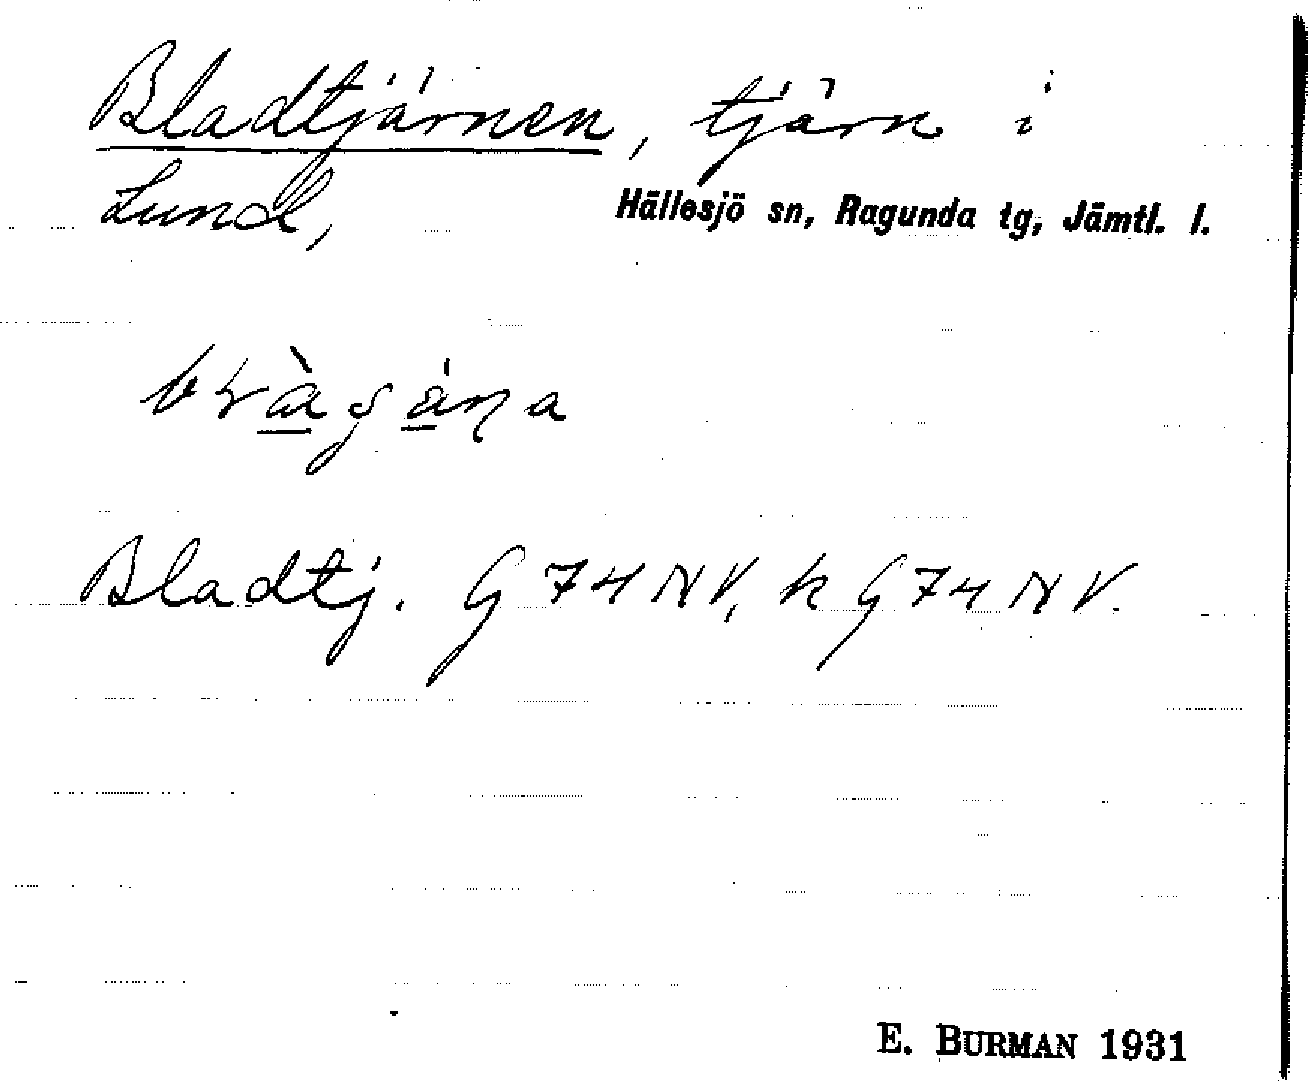 Bladtjärnen, tjärn i
Lund,
Hällesjö sn, Ragunda tg, Jämtl. l.
Bladtj. G74NV, kG74NV.
E. BURMAN 1931